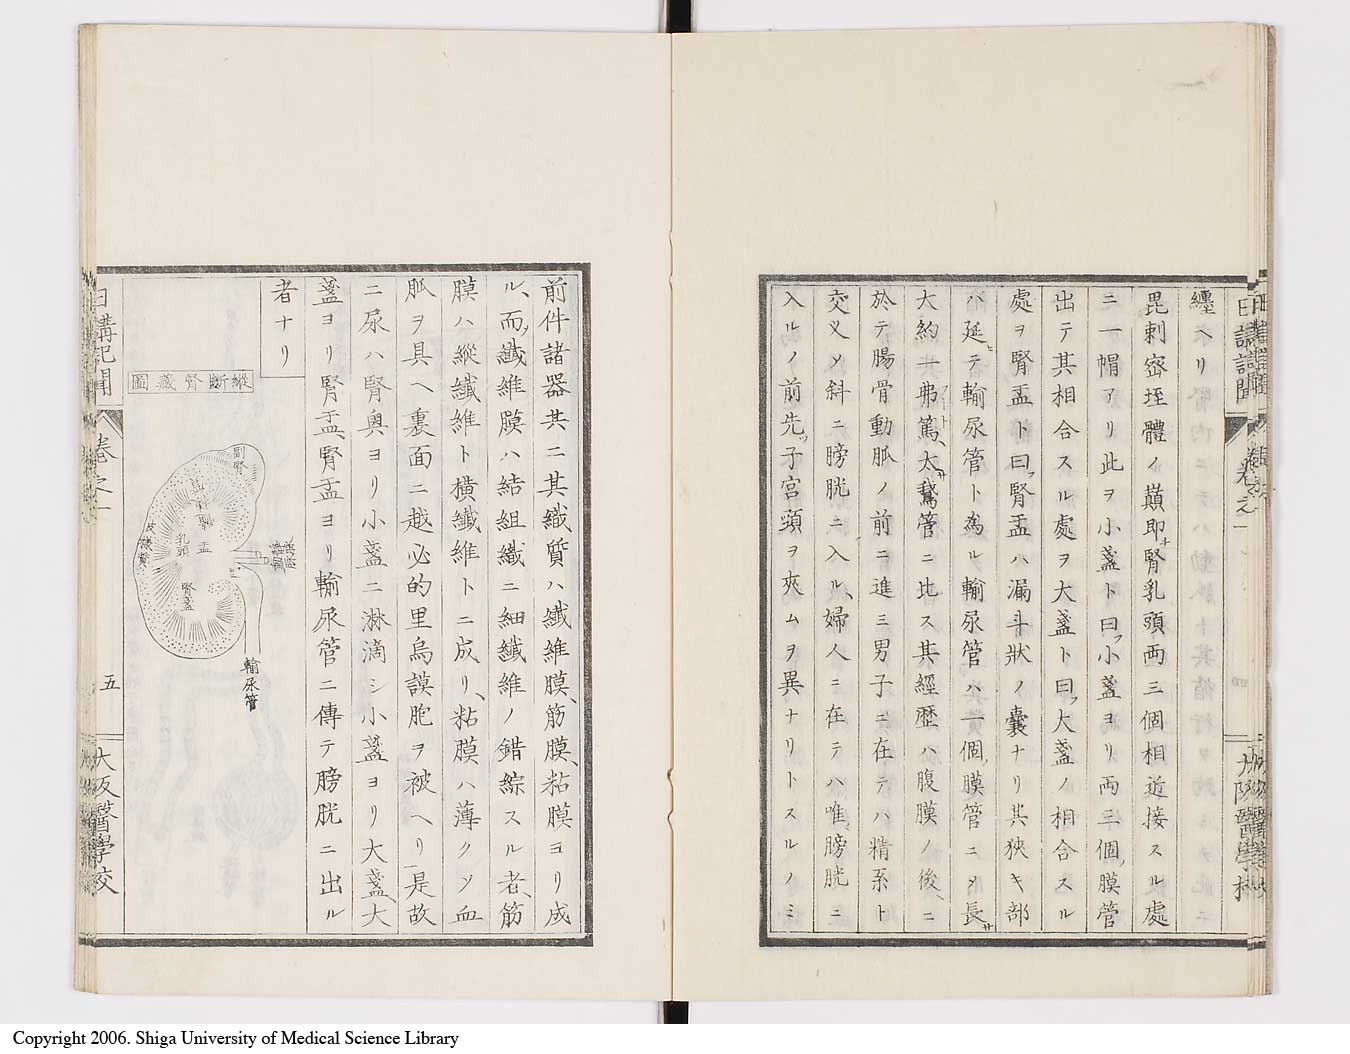 纏ヘリ
毘刺密垤體ノ巓即チ腎乳頭両三個相近接スル處
ニ一帽アリ此ヲ小盞ト曰フ小盞ヨリ両三個ノ膜管
出テ其相合スル處ヲ大盞ト曰フ大盞ノ相合スル
處ヲ腎盂ト曰フ腎盂ハ漏斗狀ノ囊ナリ其狹キ部
ハ延テ輸尿管ト為ル輸尿管ハ一個ノ膜管ニメ長サ
大約一弗篤、大サ鵞管ニ比ス其經歴ハ腹膜ノ後ニ
於テ腸骨動脈ノ前ニ進ミ男子ニ在テハ精系ト
交叉メ斜ニ膀胱ニ入ル、婦人ニ在テハ唯膀胱ニ
入ルノ前先ツ子宮頸ヲ夾ムヲ異ナリトスルノミ
日講記聞
卷之一
四
大阪醫學校
前件諸器共ニ其織質ハ纖維膜、筋膜、粘膜ヨリ成
ル、而メ纖維膜ハ結組織ニ細纖維ノ錯綜スル者、筋
膜ハ縱纖維ト横纖維トニ成リ、粘膜ハ薄クメ血
脈ヲ具ヘ裏面ニ越必的里烏謨胞ヲ被ヘリ是故
ニ尿ハ腎奥ヨリ小盞ニ淋滴シ小盞ヨリ大盞、大
盞ヨリ腎盂、腎盂ヨリ輸尿管ニ傳テ膀胱ニ出ル
者ナリ
縱斷腎藏圖
副腎
乳頭
盂
腎盞
皮樣質
輸尿管
日講記聞
卷之一
五
大阪醫學校
Copyright 2006. Shiga University of Medical Science Library